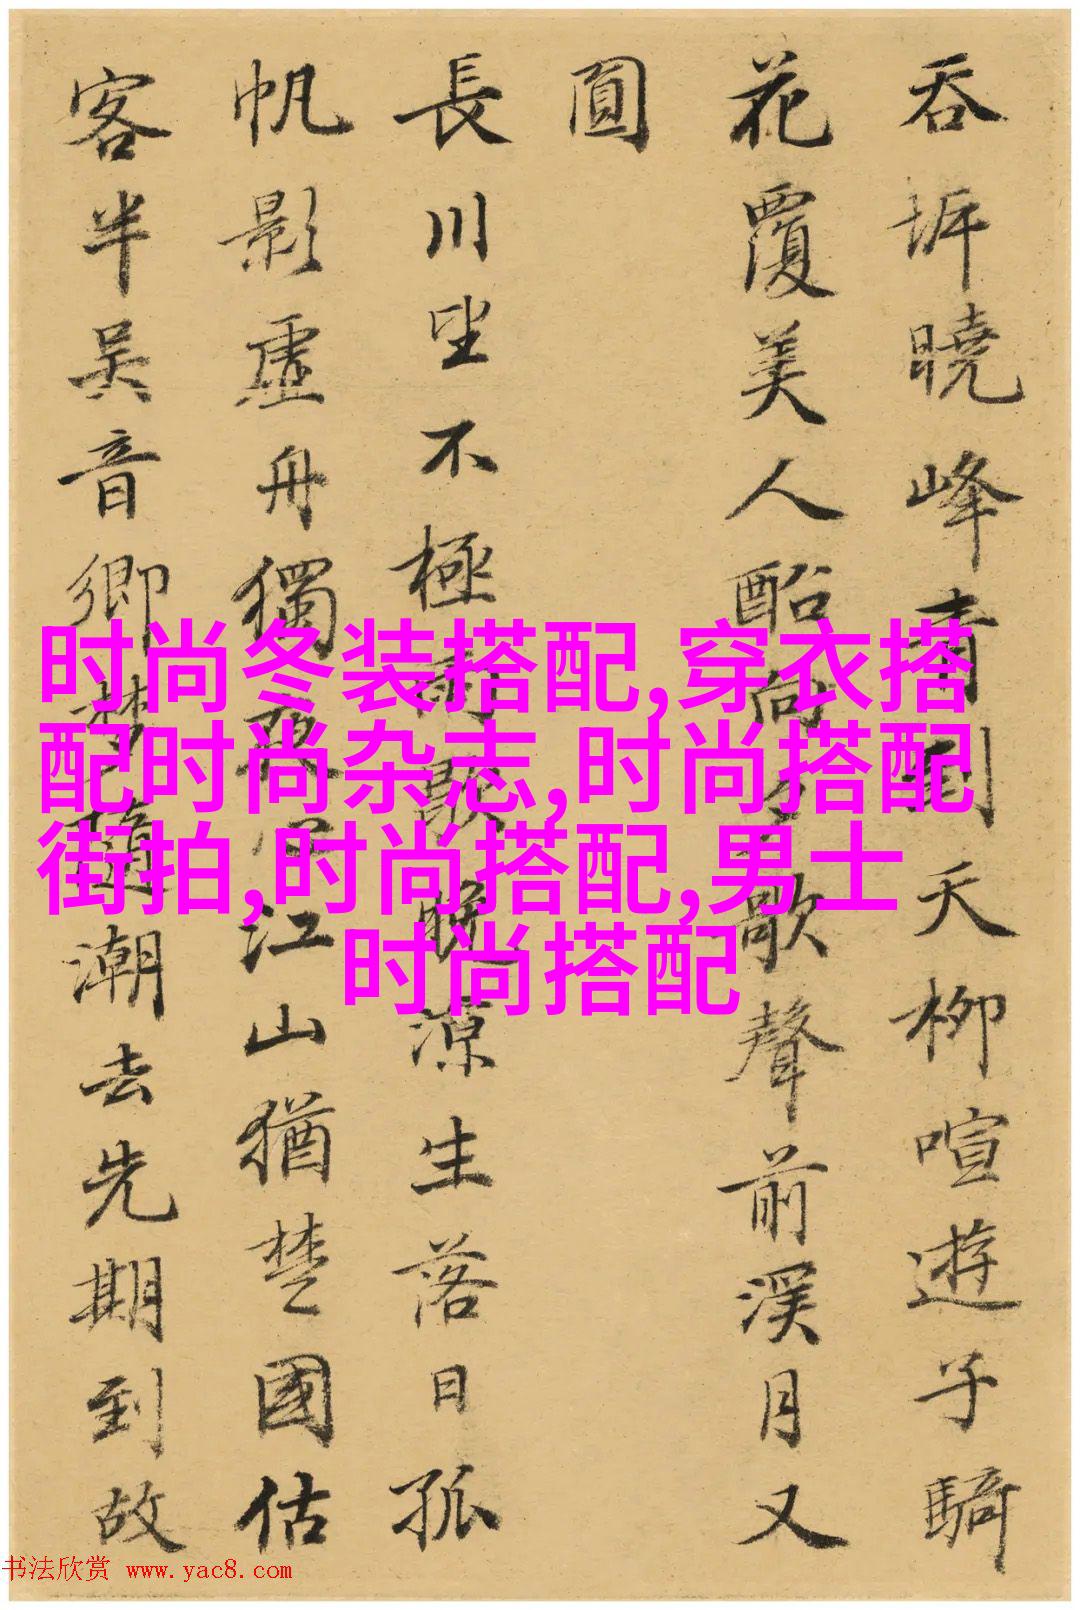 吞坼曉峰青到天柳喧遊子騎
花覆美人酩向歌聲前溪月又
圓
長川望不極歌晚涼生落日孤
帆影虛舟獨夜江山猶楚國估
客半吳音鄉夢隨潮去先期到故
时尚冬装搭配,穿衣搭
配时尚杂志,时尚搭配
街拍,时尚搭配,男士
时尚搭配
书法欣赏 www.yac8.com